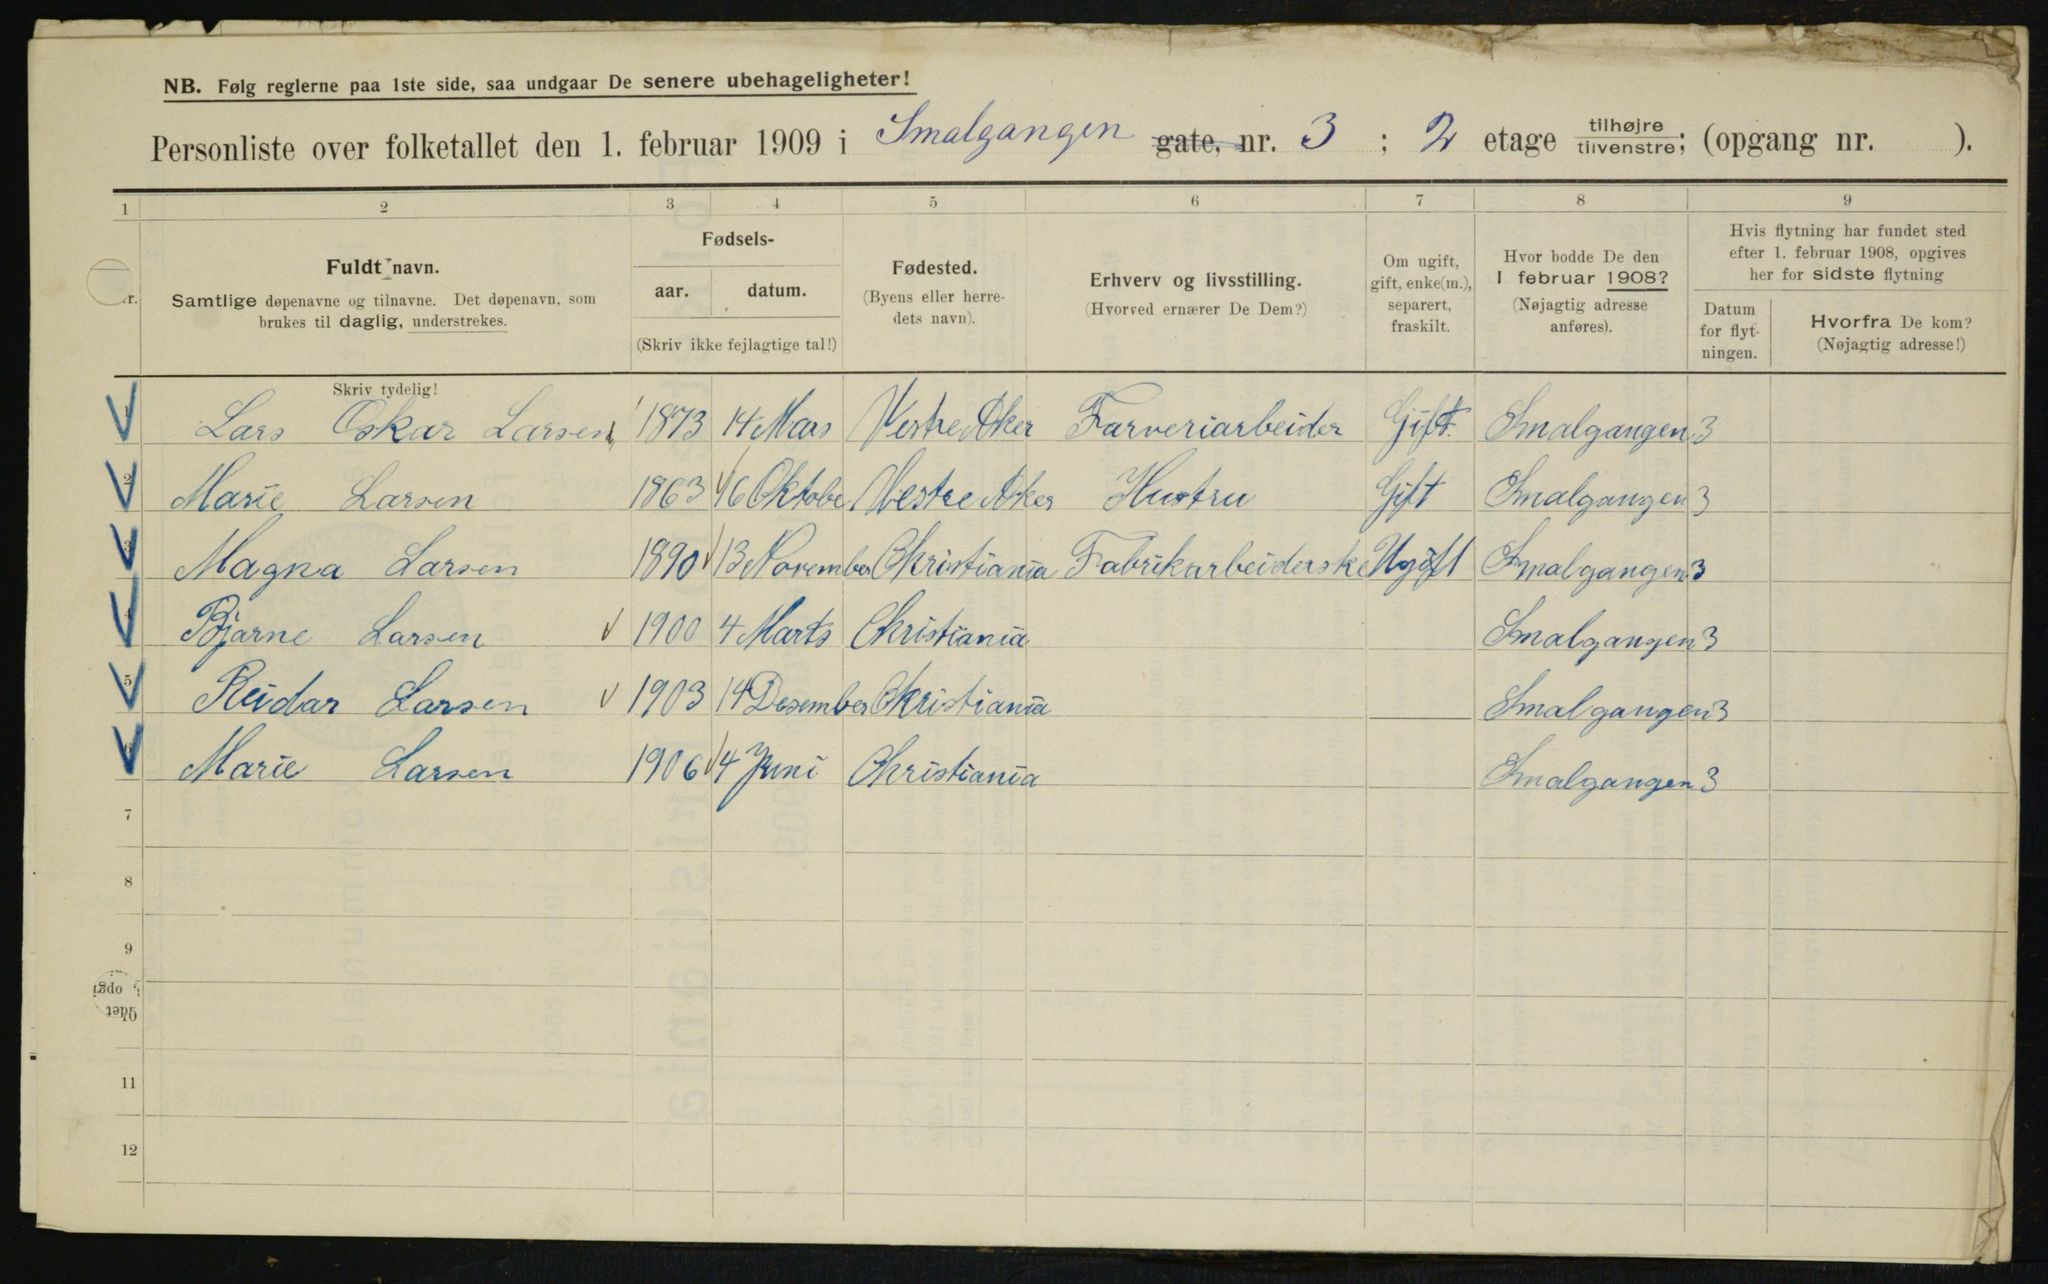 NB. Følg reglerne paa 1ste side, saa undgaar De senere ubehageligheter!
Personliste over folketallet den 1. februar 1909 i Smalgangen gate, nr. 3 ; 2 etage tilhøjre tilvenstre; (opgang nr. ).
1 2 3 4 5 6 7 8 9
r. Fuldt navn. Samtlige døpenavne og tilnavne. Det døpenavn, som
brukes til daglig, understrekes.
Skriv tydelig!
Fødsels-
aar. datum.
(Skriv ikke fejlagtige tal!)
Fødested.
(Byens eller herre-
dets navn).
Erhverv og livsstilling.
(Hvorved ernærer De Dem?)
Om ugift,
gift, enke(m.),
separert,
fraskilt.
Hvor bodde De den
1 februar 1908?
(Nøjagtig adresse
anføres).
Hvis flytning har fundet sted
efter 1. februar 1908, opgives
her for sidste flytning
Datum
for flyt-
ningen.
Hvorfra De kom?
(Nøjagtig adresse!)
1 Lars Oskar Larsen 1873 14 Mars Vestre Aker Farveriarbeider Gift. Smalgangen 3
2 Marie Larsen 1863 16 Oktobe Vestre Aker Hustru Gift Smalgangen 3
3 Magna Larsen 1890 13 November Christiania Fabrikarbeiderske Ugift Smalgangen 3
4 Bjarne Larsen 1900 4 Marts Christiania Smalgangen 3
5 Reidar Larsen 1903 14 Desember Christiania Smalgangen 3
6 Marie Larsen 1906 4 Juni Christiania Smalgangen 3
7
8
9
10
11
12